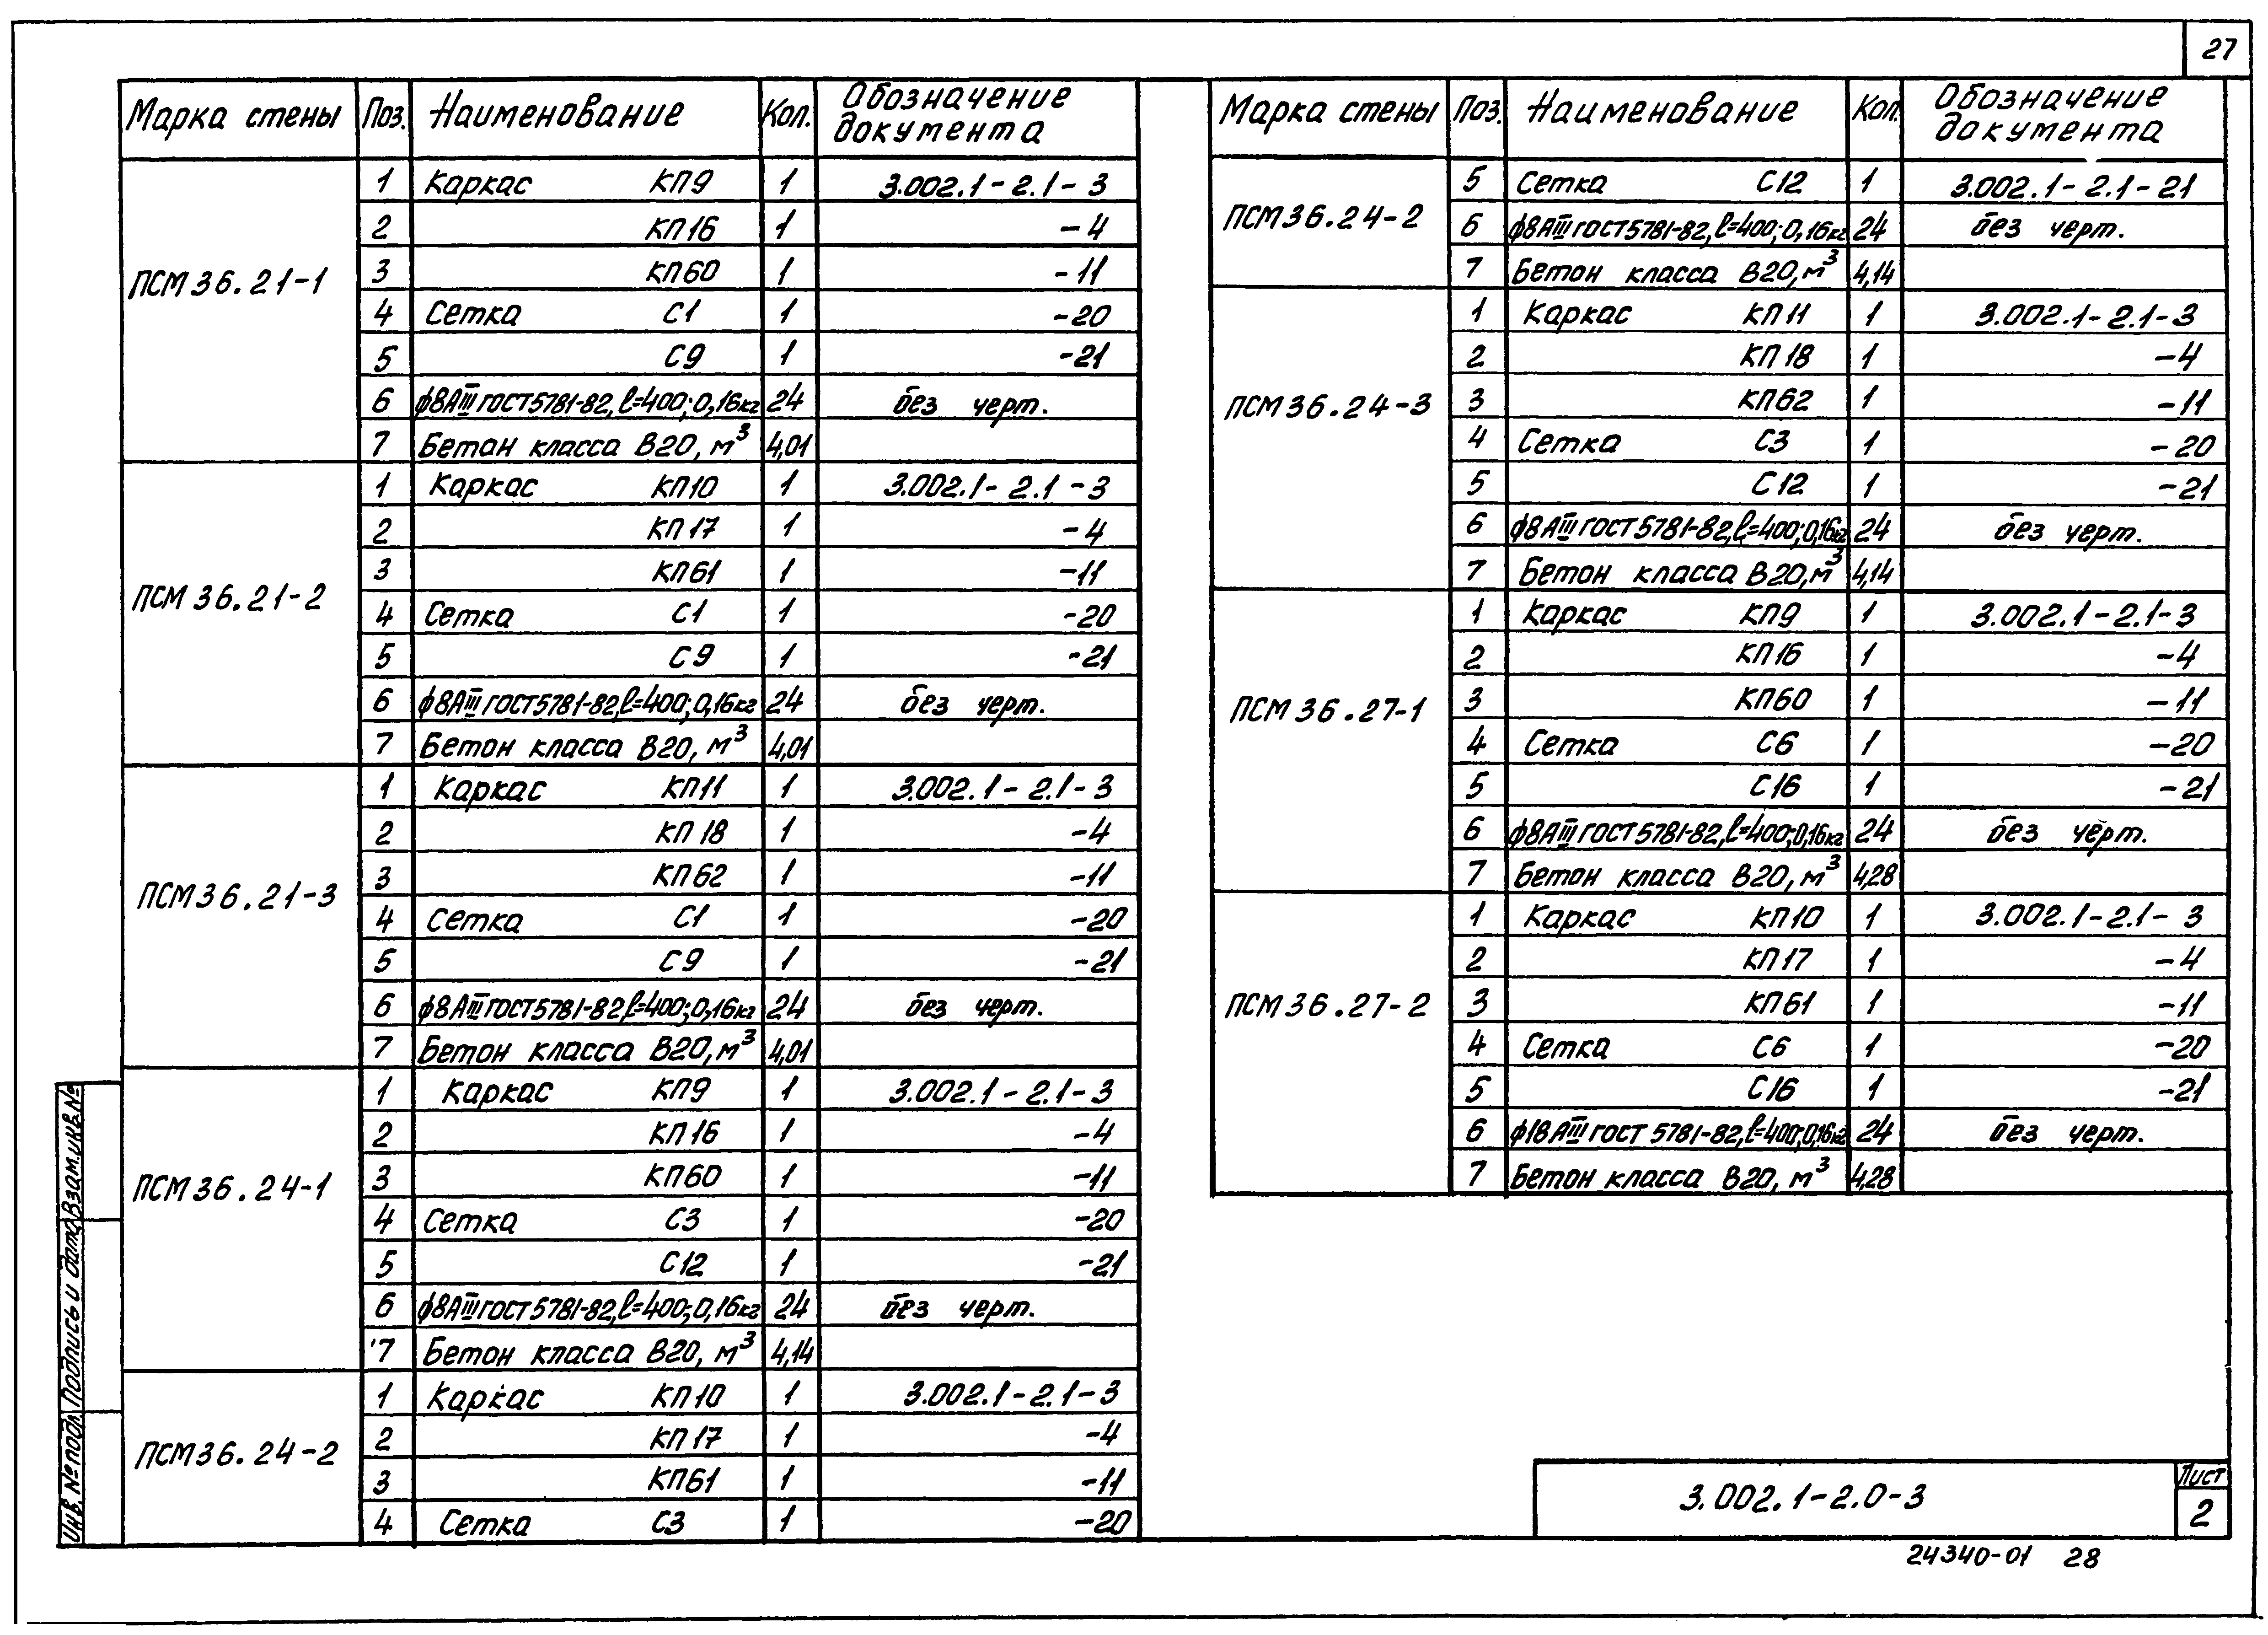 27
Марка стены Поз. Наименование Кол. Обозначение документа
ПСМ36.21-1
1 Каркас КП9 1 3.002.1-2.1-3
2 КП16 1 -4
3 КП60 1 -11
4 Сетка С1 1 -20
5 С9 1 -21
6 ф8АIII ГОСТ5781-82, ℓ=400; 0,16кг 24 без черт.
7 Бетон класса В20, м³ 4,01
ПСМ36.21-2
1 Каркас КП10 1 3.002.1-2.1-3
2 КП17 1 -4
3 КП61 1 -11
4 Сетка С1 1 -20
5 С9 1 -21
6 ф8АIII ГОСТ5781-82, ℓ=400; 0,16кг 24 без черт.
7 Бетон класса В20, м³ 4,01
ПСМ36.21-3
1 Каркас КП11 1 3.002.1-2.1-3
2 КП18 1 -4
3 КП62 1 -11
4 Сетка С1 1 -20
5 С9 1 -21
6 ф8АIII ГОСТ5781-82, ℓ=400; 0,16кг 24 без черт.
7 Бетон класса В20, м³ 4,01
ПСМ36.24-1
1 Каркас КП9 1 3.002.1-2.1-3
2 КП16 1 -4
3 КП60 1 -11
4 Сетка С3 1 -20
5 С12 1 -21
6 ф8АIII ГОСТ5781-82, ℓ=400; 0,16кг 24 без черт.
7 Бетон класса В20, м³ 4,14
ПСМ36.24-2
1 Каркас КП10 1 3.002.1-2.1-3
2 КП17 1 -4
3 КП61 1 -11
4 Сетка С3 1 -20
Марка стены Поз. Наименование Кол. Обозначение документа
ПСМ36.24-2
5 Сетка С12 1 3.002.1-2.1-21
6 ф8АIII ГОСТ5781-82, ℓ=400; 0,16кг 24 без черт.
7 Бетон класса В20, м³ 4,14
ПСМ36.24-3
1 Каркас КП11 1 3.002.1-2.1-3
2 КП18 1 -4
3 КП62 1 -11
4 Сетка С3 1 -20
5 С12 1 -21
6 ф8АIII ГОСТ5781-82, ℓ=400; 0,16кг 24 без черт.
7 Бетон класса В20, м³ 4,14
ПСМ36.27-1
1 Каркас КП9 1 3.002.1-2.1-3
2 КП16 1 -4
3 КП60 1 -11
4 Сетка С6 1 -20
5 С16 1 -21
6 ф8АIII ГОСТ5781-82, ℓ=400; 0,16кг 24 без черт.
7 Бетон класса В20, м³ 4,28
ПСМ36.27-2
1 Каркас КП10 1 3.002.1-2.1-3
2 КП17 1 -4
3 КП61 1 -11
4 Сетка С6 1 -20
5 С16 1 -21
6 ф18АIII ГОСТ 5781-82, ℓ=400; 0,16кг 24 без черт.
7 Бетон класса В20, м³ 4,28
Инв. № подл. Подпись и дата Взам. инв. №
3.002.1-2.0-3
Лист
2
24340-01 28